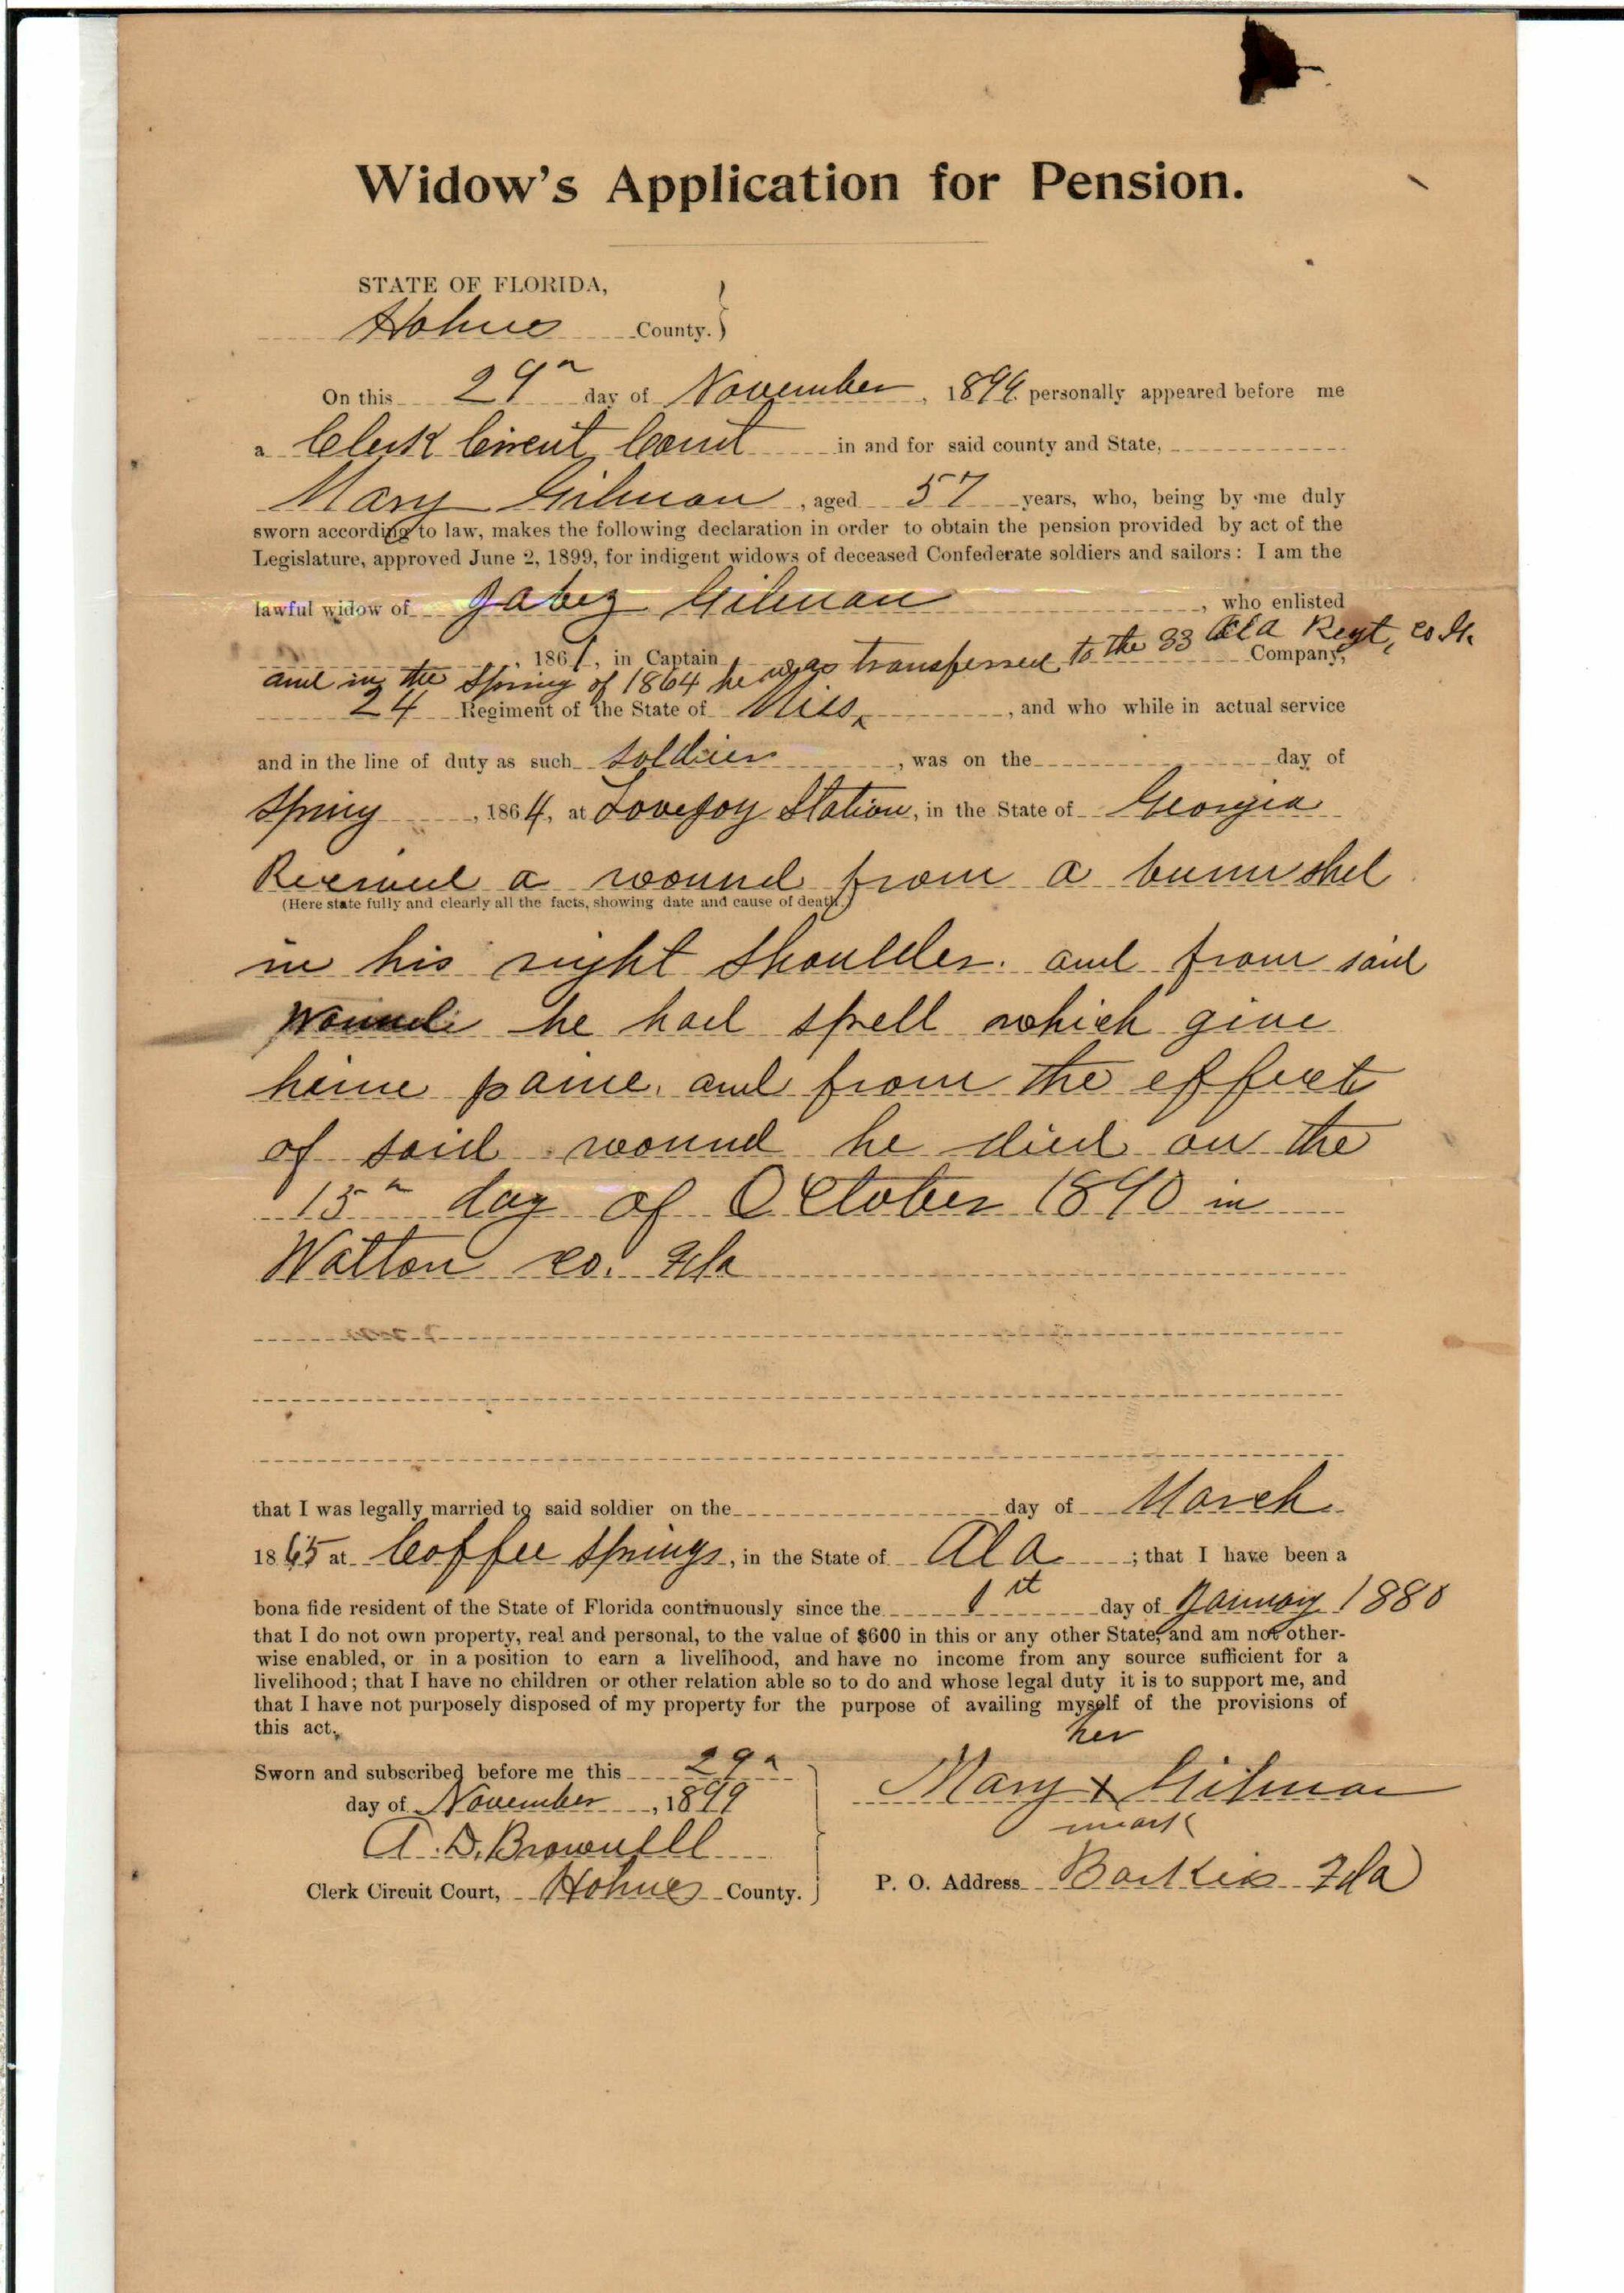 Widow's Application for Pension.
STATE OF FLORIDA,
Holmes County.
On this 29th day of November, 1899 personally appeared before me
a Clerk Circuit Court in and for said county and State,
Mary Gilman, aged 57 years, who, being by me duly
sworn according to law, makes the following declaration in order to obtain the pension provided by act of the
Legislature, approved June 2, 1899, for indigent widows of deceased Confederate soldiers and sailors: I am the
lawful widow of Jabez Gilman, who enlisted
, 1861, in Captain Company,
and in the Spring of 1864 he was transferred to the 33 Ala Regt, Co
24 Regiment of the State of Miss, and who while in actual service
and in the line of duty as such soldier, was on the day of
Spring, 1864, at Lovejoy Station, in the State of Georgia
Received a wound from a bumshel
(Here state fully and clearly all the facts, showing date and cause of death.)
in his right Shoulder. and from said
wound he had spell which give
hime paine. and from the effect
of said wound he died on the
15th day of October 1890 in
Walton Co. Fla
that I was legally married to said soldier on the day of March
1865 at Coffee Springs, in the State of Ala; that I have been a
bona fide resident of the State of Florida continuously since the 1st day of January 1880
that I do not own property, real and personal, to the value of $600 in this or any other State, and am not other-
wise enabled, or in a position to earn a livelihood, and have no income from any source sufficient for a
livelihood; that I have no children or other relation able so to do and whose legal duty it is to support me, and
that I have not purposely disposed of my property for the purpose of availing myself of the provisions of
this act.
Sworn and subscribed before me this 29th
day of November, 1899
A. D. Brownell
Clerk Circuit Court, Holmes County.
her
Mary x Gilman
mark
P. O. Address Fla